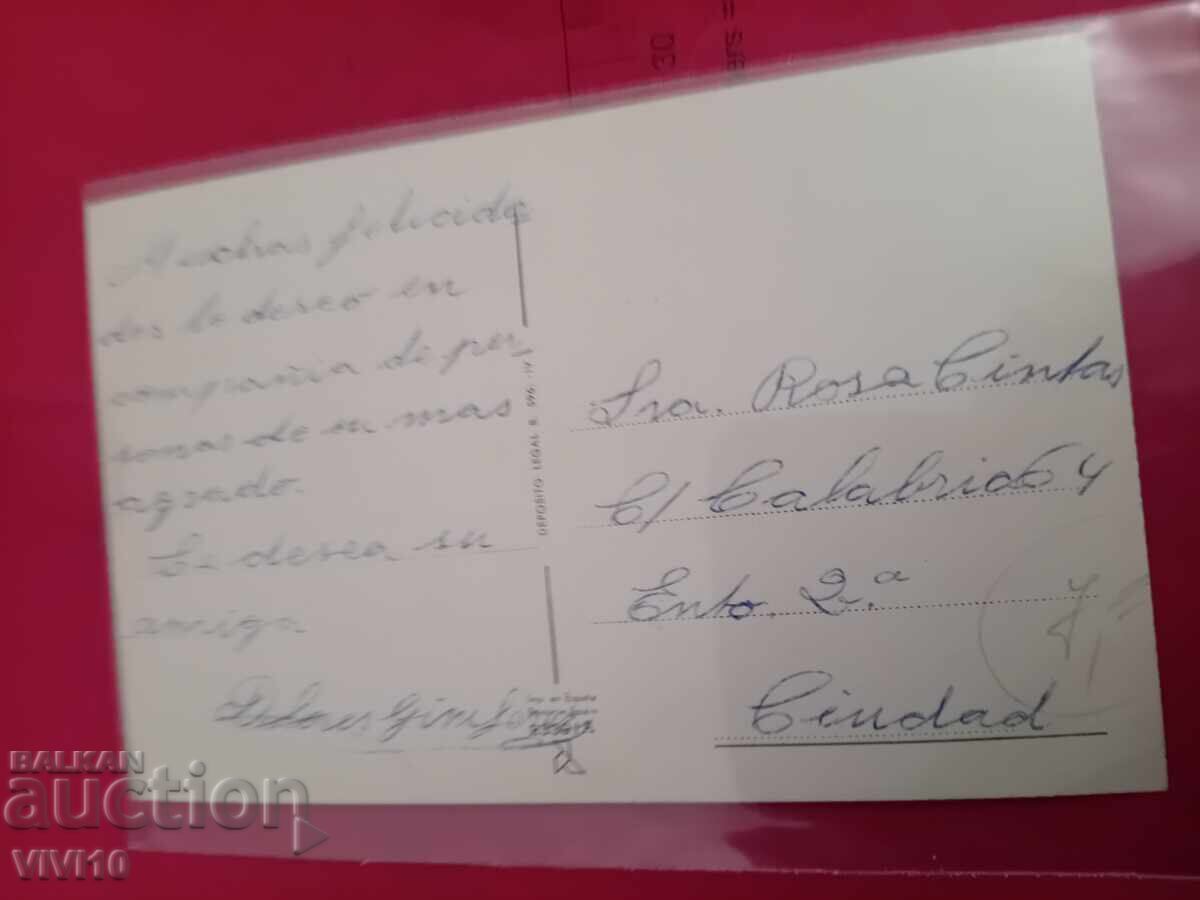 30
Muchas felicida
des le deseo en
compañia de per
sonas de su mas
agrado.
Le desea su
amiga
Dolores
DEPOSITO LEGAL B. 596-IV
Imp. en España
Sra. Rosa Cintas
C/ Calabria 64
Ento. 2.ª
Ciudad
BALKAN
auction
VIVI10